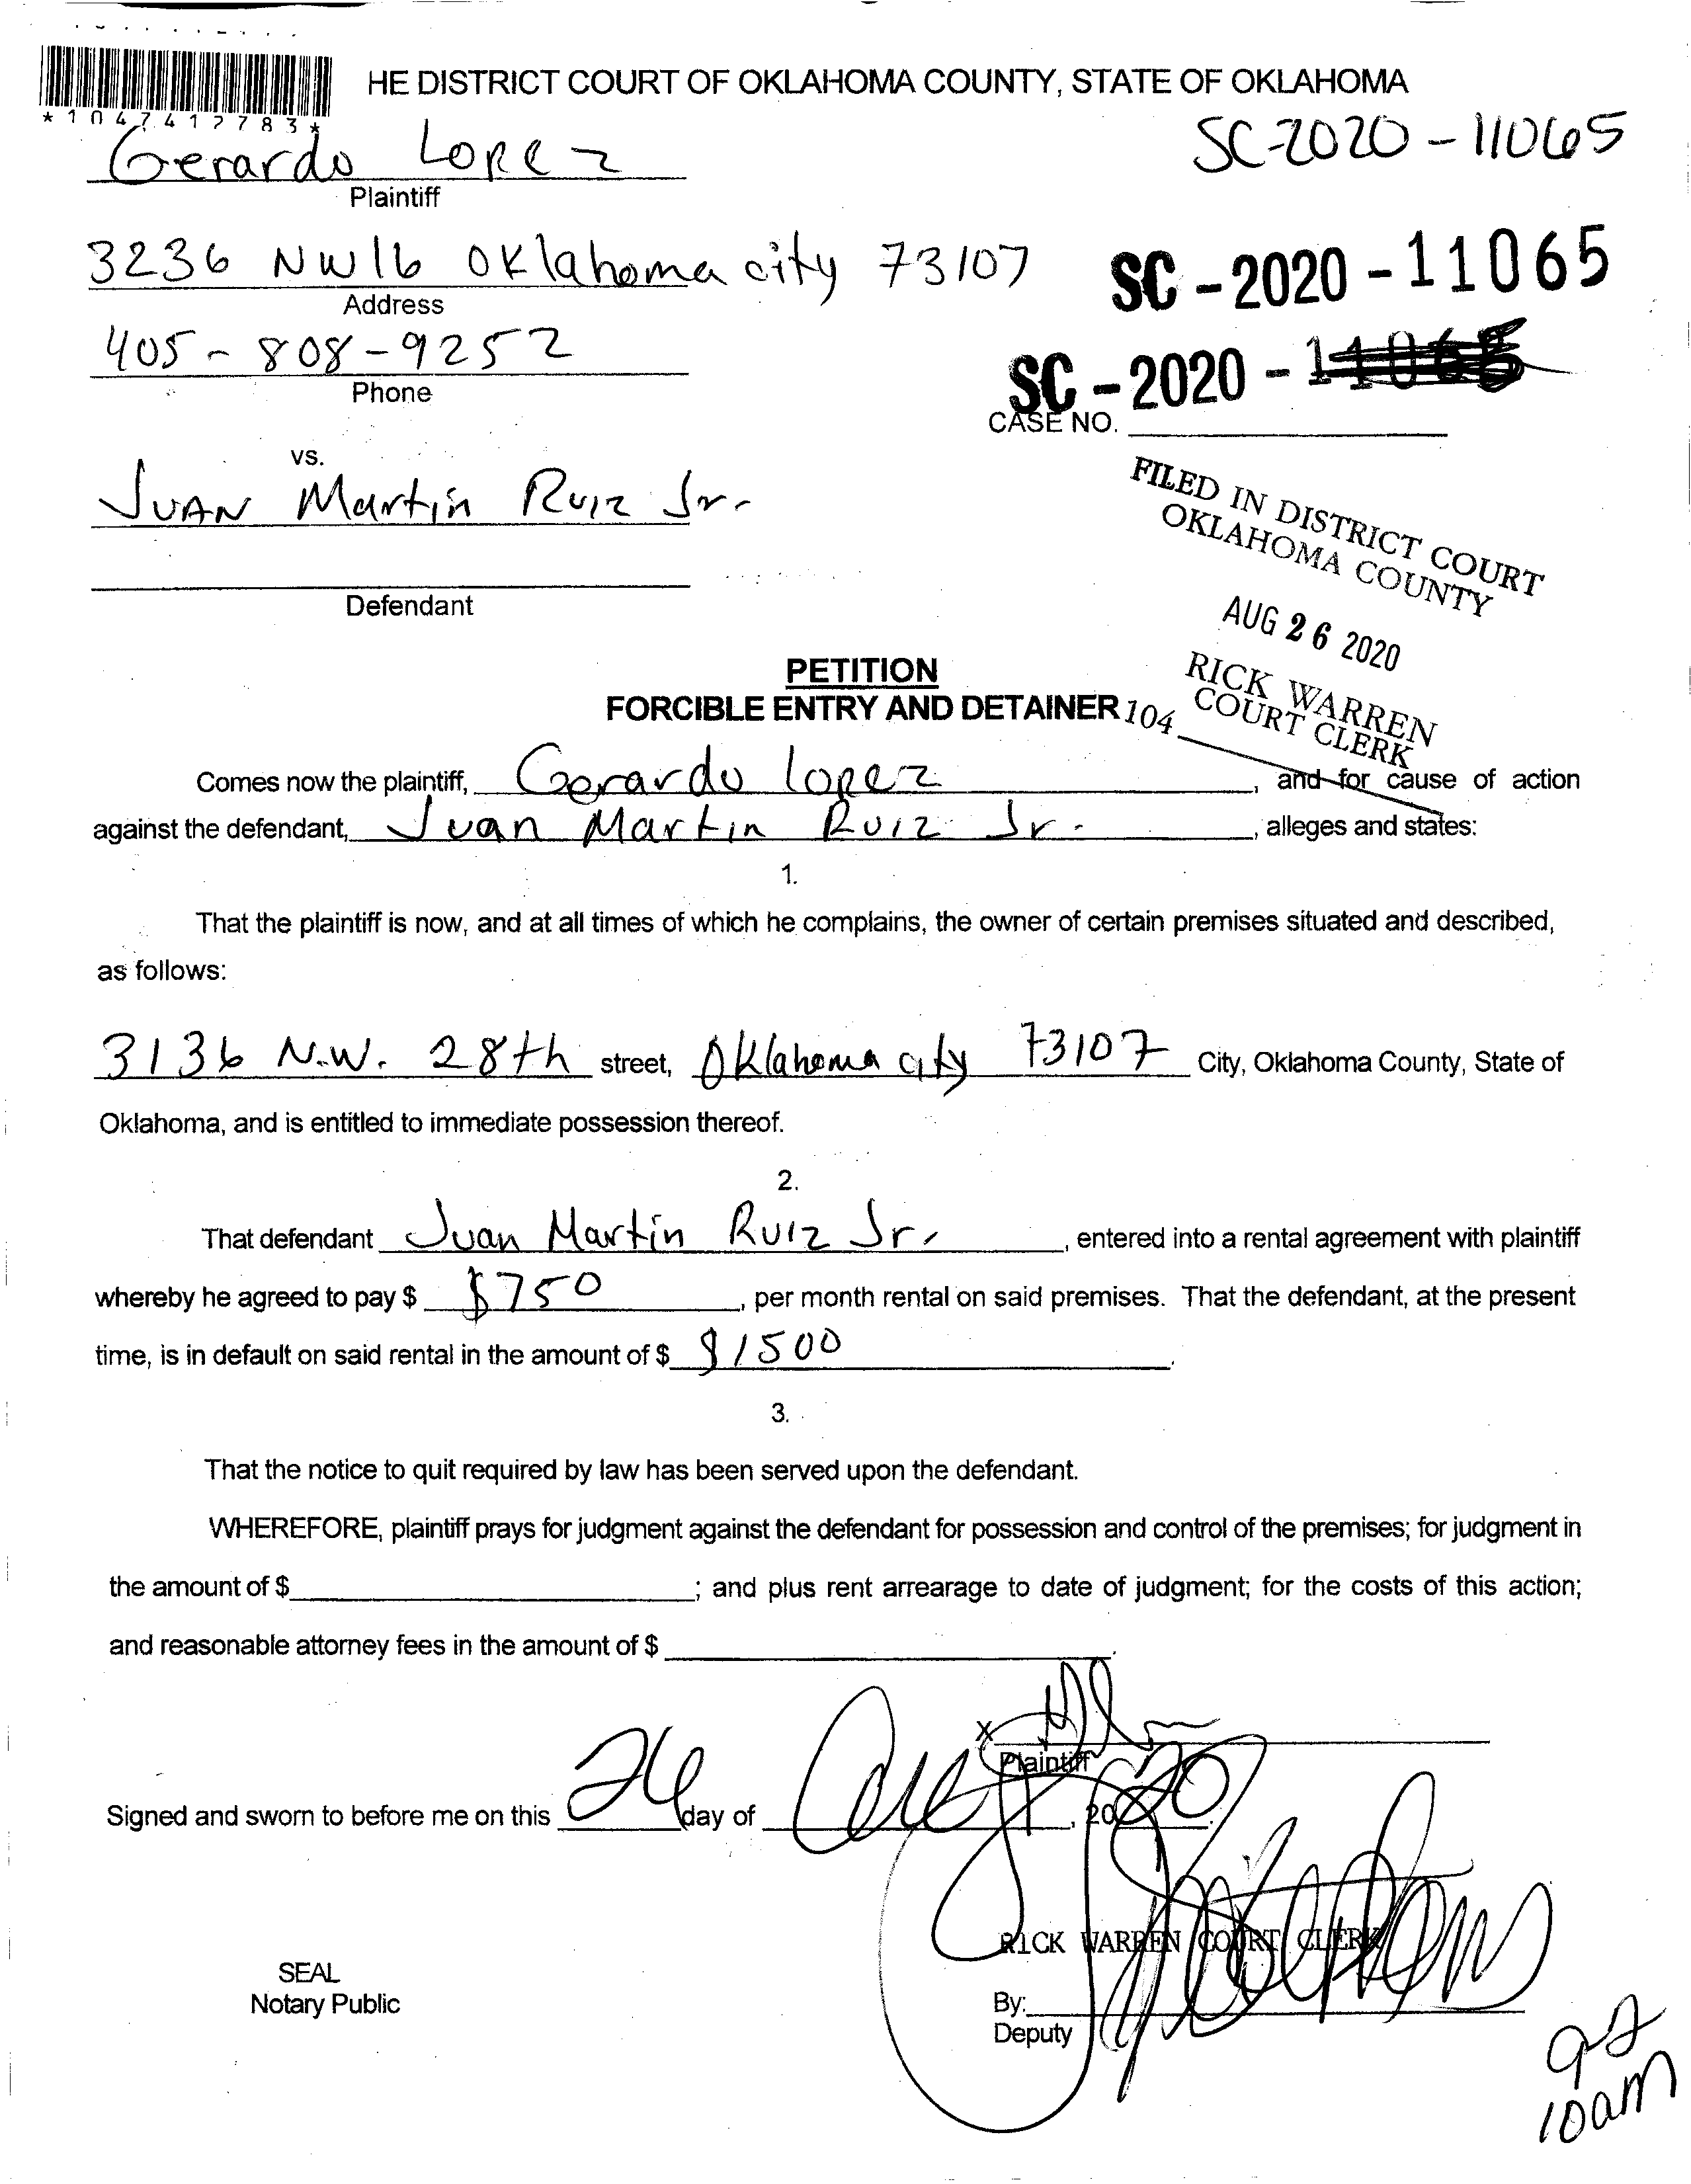 HE DISTRICT COURT OF OKLAHOMA COUNTY, STATE OF OKLAHOMA
*1047417783*
Gerardo Lopez
SC-2020-11065
Plaintiff
3236 NW16 Oklahoma city 73107
SC-2020-11065
Address
405-808-9252
Phone
SC-2020-11065
CASE NO.
vs.
JUAN Martin Ruiz Jr.
FILED IN DISTRICT COURT
OKLAHOMA COUNTY
Defendant
AUG 26 2020
RICK WARREN
COURT CLERK
104
PETITION
FORCIBLE ENTRY AND DETAINER
Comes now the plaintiff, Gerardo lopez, and for cause of action
against the defendant, Juan Martin Ruiz Jr., alleges and states:
1.
That the plaintiff is now, and at all times of which he complains, the owner of certain premises situated and described,
as follows:
3136 N.W. 28th street, Oklahoma city 73107 City, Oklahoma County, State of
Oklahoma, and is entitled to immediate possession thereof.
2.
That defendant Juan Martin Ruiz Jr., entered into a rental agreement with plaintiff
whereby he agreed to pay $ $750, per month rental on said premises. That the defendant, at the present
time, is in default on said rental in the amount of $ $1500.
3.
That the notice to quit required by law has been served upon the defendant.
WHEREFORE, plaintiff prays for judgment against the defendant for possession and control of the premises; for judgment in
the amount of $ ; and plus rent arrearage to date of judgment; for the costs of this action;
and reasonable attorney fees in the amount of $ .
X
Plaintiff
Signed and sworn to before me on this 26 day of Aug, 2020.
RICK WARREN COURT CLERK
SEAL
Notary Public
By:
Deputy
9-2
10am